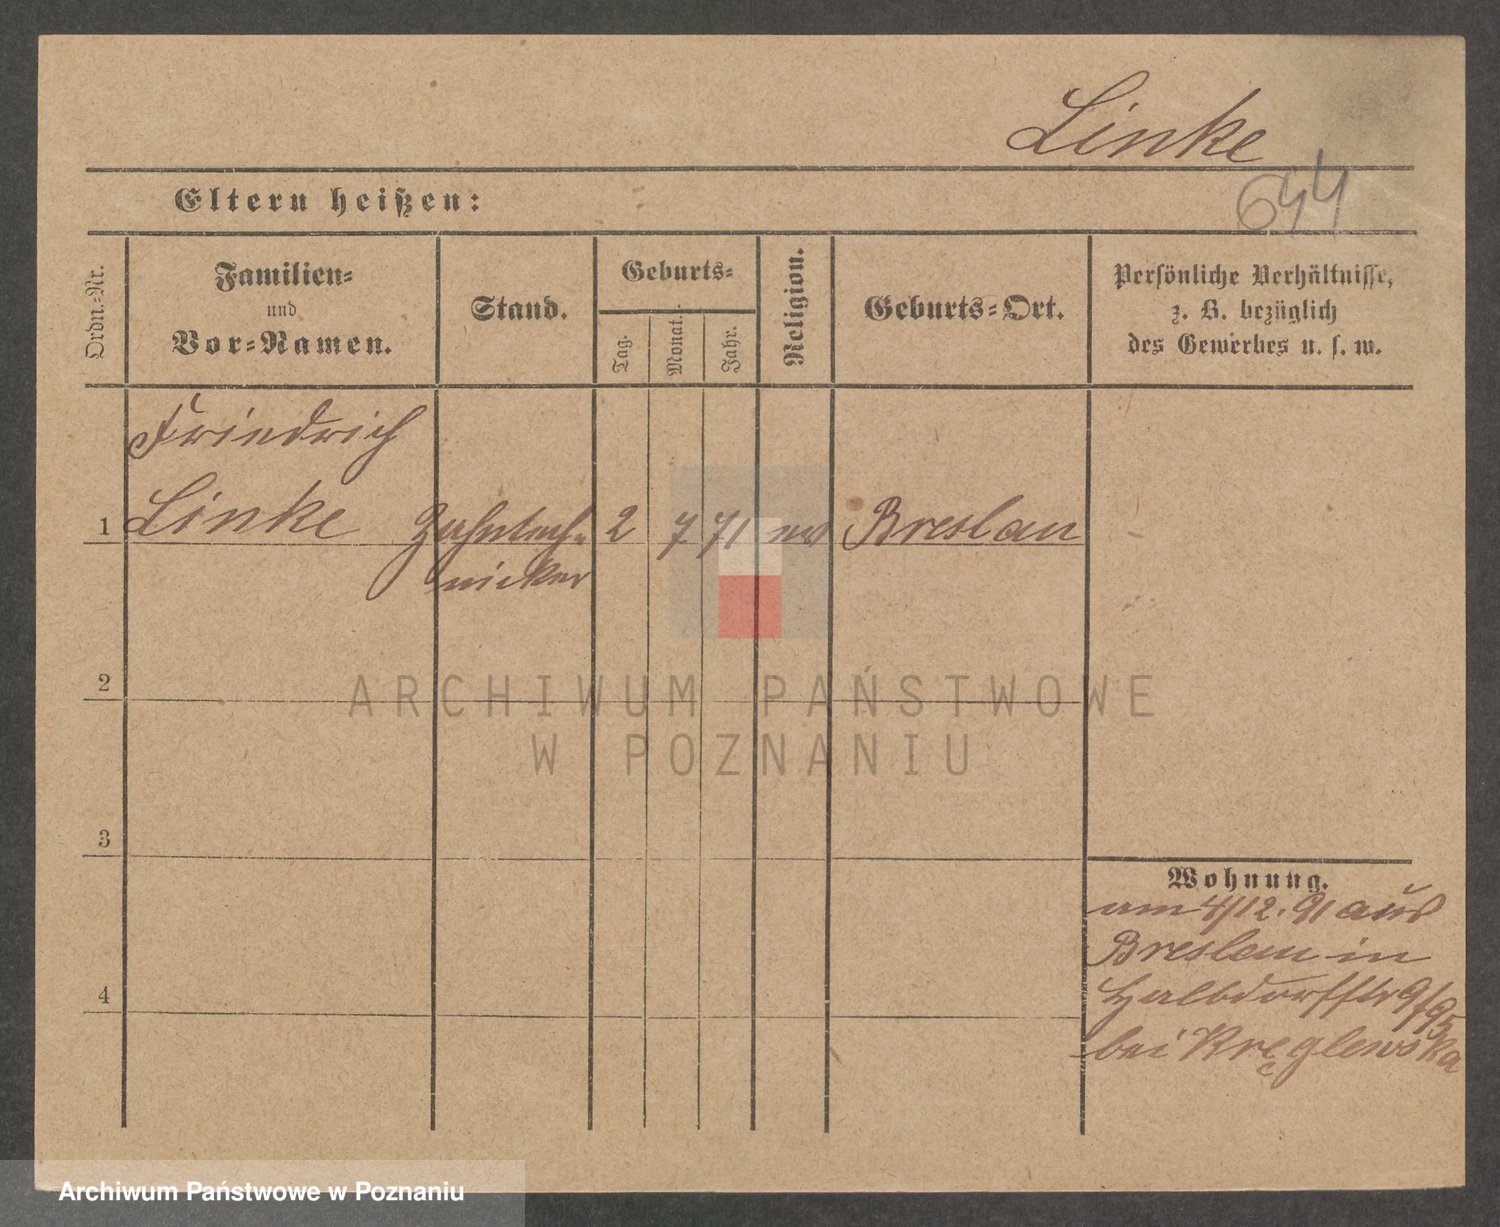 Linke
644
Eltern heißen:
Ordn.-Nr.
Familien-
und
Vor-Namen.
Stand.
Geburts-
Tag.
Monat.
Jahr.
Religion.
Geburts-Ort.
Persönliche Verhältnisse,
z. B. bezüglich
des Gewerbes u. s. w.
Friedrich
1 Linke Zahntech- 2 7 71 ev Breslau
nicker
2
ARCHIWUM PAŃSTWOWE
W POZNANIU
3
Wohnung.
am 4/12. 91 aus
Breslau in
4
Halbdorfstr 9/95
bei Kręglewska
Archiwum Państwowe w Poznaniu